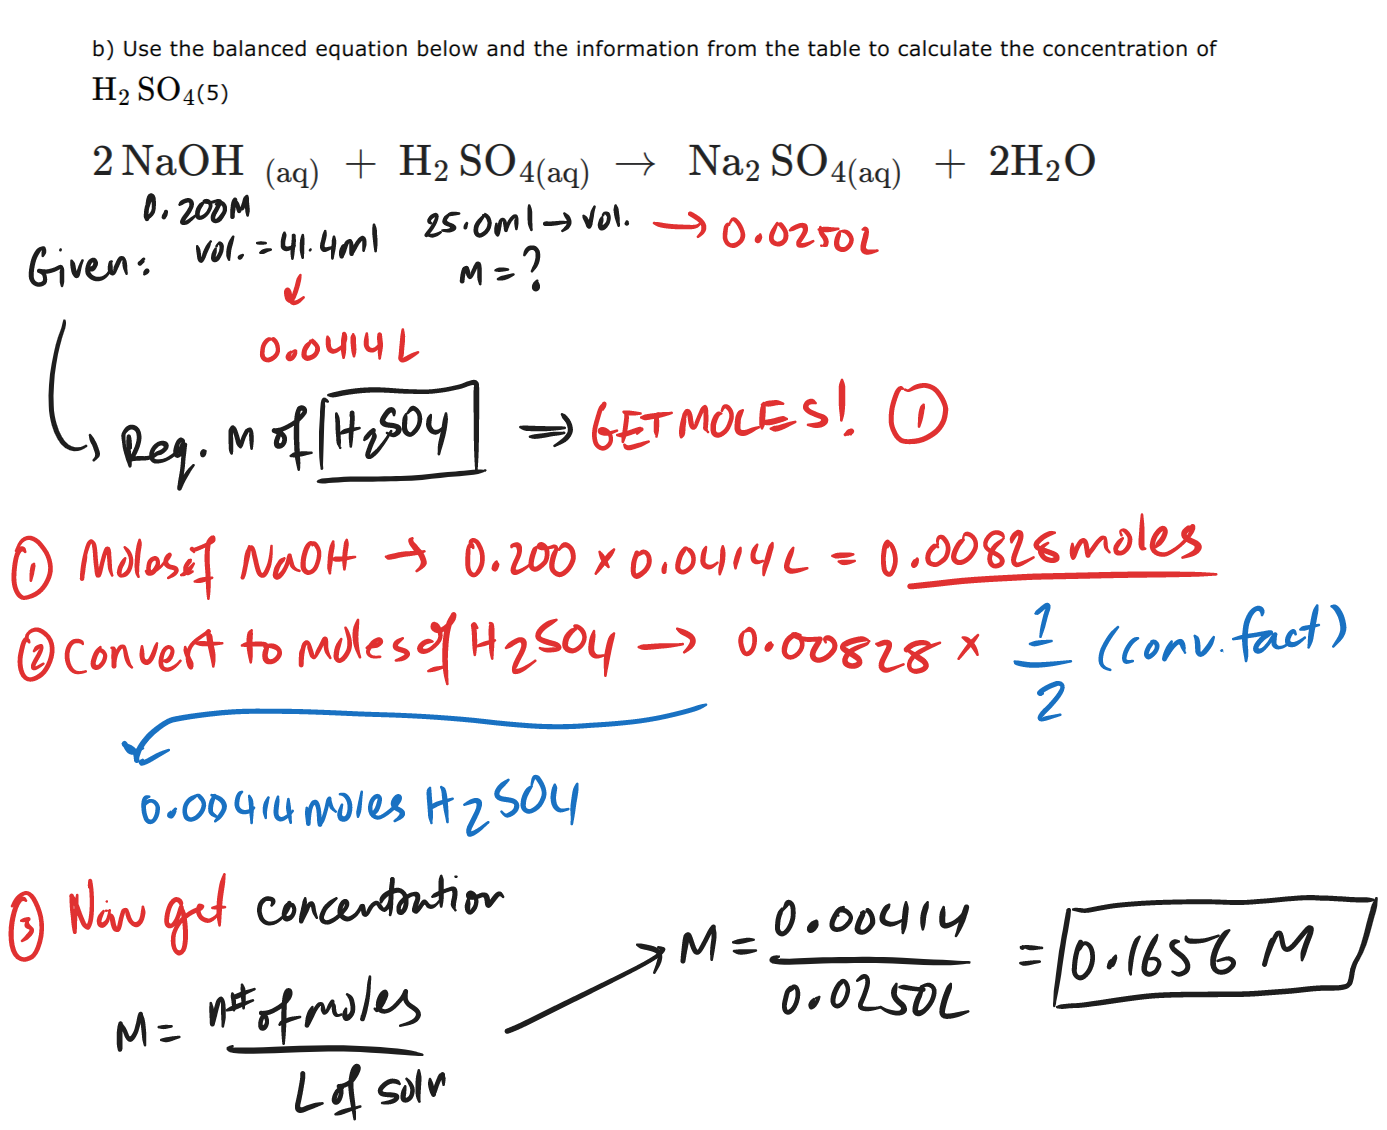 b) Use the balanced equation below and the information from the table to calculate the concentration of
H₂ SO₄(5)
2 NaOH (aq) + H₂ SO₄(aq) → Na₂ SO₄(aq) + 2H₂O
0.200M
25.0ml → vol. → 0.0250L
Given: vol. = 41.4ml
M = ?
0.0414 L
Req. M of H₂SO4 ⇒ GET MOLES! ①
① Moles of NaOH → 0.200 × 0.0414L = 0.00828 moles
② Convert to moles of H₂SO4 → 0.00828 × 1/2 (conv. fact)
0.00414 moles H₂SO4
③ Now get concentration
M = n# of moles / L of soln → M = 0.00414 / 0.0250L = 0.1656 M